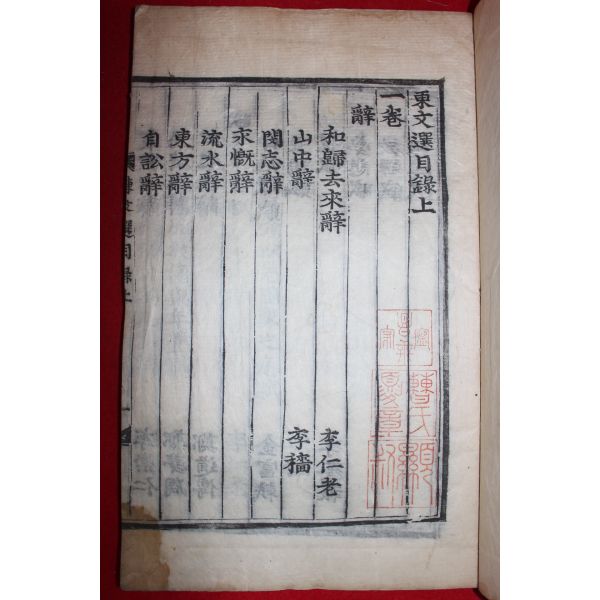 東文選目錄上
一卷
辭
和歸去來辭 李仁老
山中辭 李穡
閔志辭
永慨辭
流水辭
東方辭
自訟辭
東文選目錄上